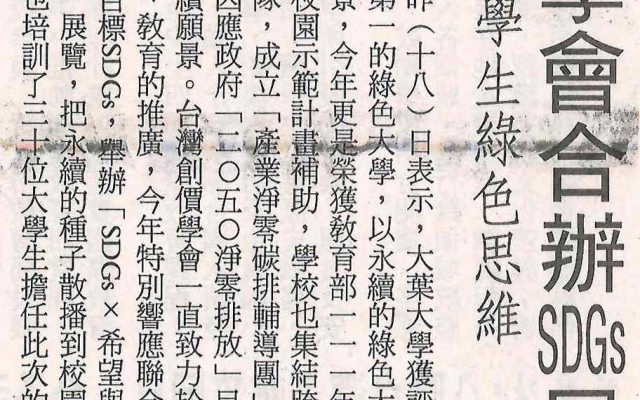 學會合辦SDGs
學生綠色思維
昨（十八）日表示，大葉大學獲評
第一的綠色大學，以永續的綠色大
景，今年更是榮獲教育部一一一年
校園示範計畫補助，學校也集結跨
隊，成立「產業淨零碳排輔導團」
因應政府「二〇五〇淨零排放」目
續願景。台灣創價學會一直致力於
、教育的推廣，今年特別響應聯合
目標SDGs，舉辦「SDGs×希望與
展覽，把永續的種子散播到校園
也培訓了三十位大學生擔任此次的